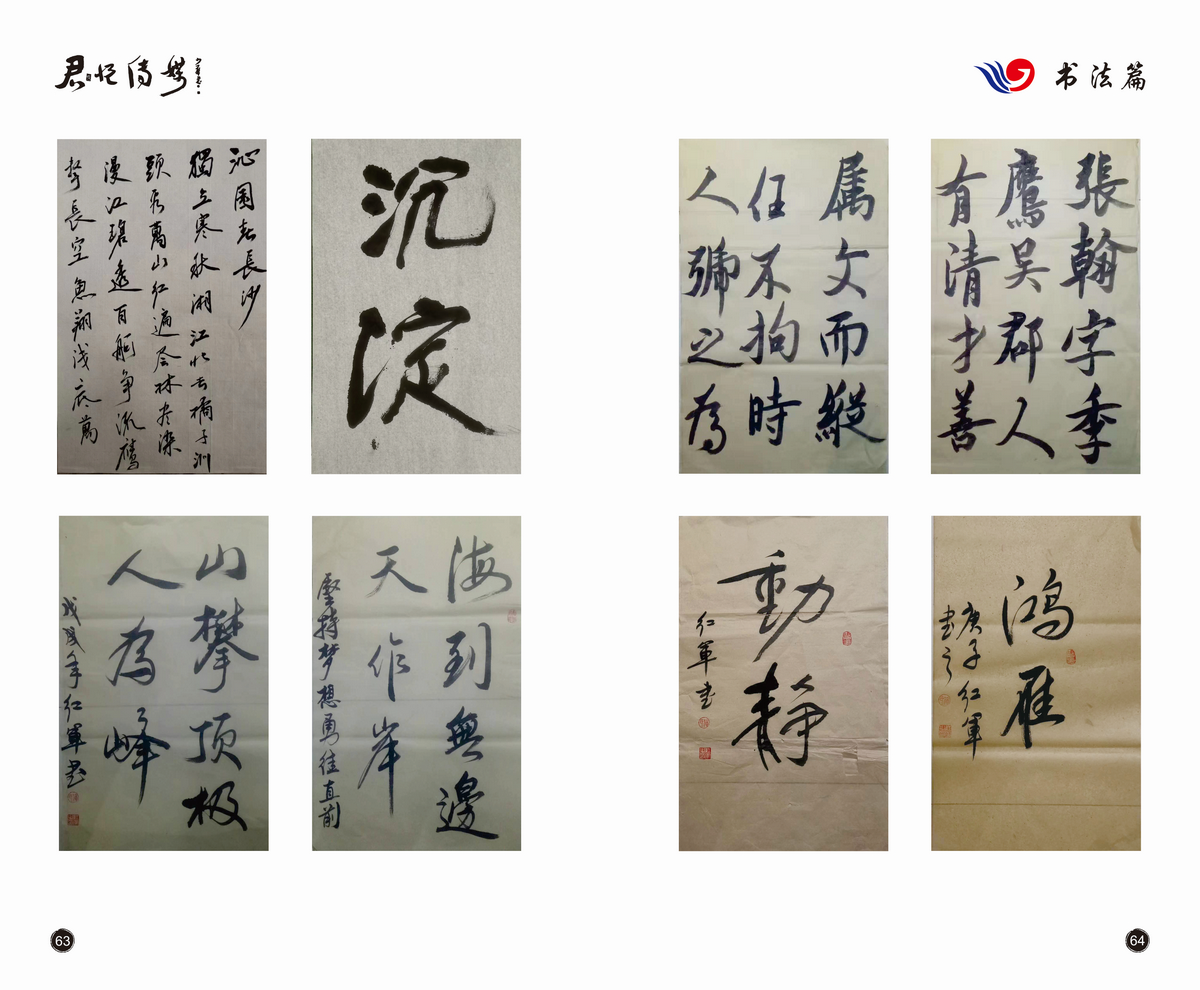 君忆传媒
书法篇
沁園春長沙
獨立寒秋湘江北去橘子洲
頭看萬山紅遍层林尽染
漫江碧透百舸争流鹰
擊長空魚翔浅底萬
沉淀
張翰字季
鷹吴郡人
有清才善
属文而縱
任不拘時
人號之為
山攀顶极
人為峰
戊戌年红軍书
海到無邊
天作岸
坚持梦想勇往直前
動靜
红軍书
鸿雁
庚子红軍
书之
63
64